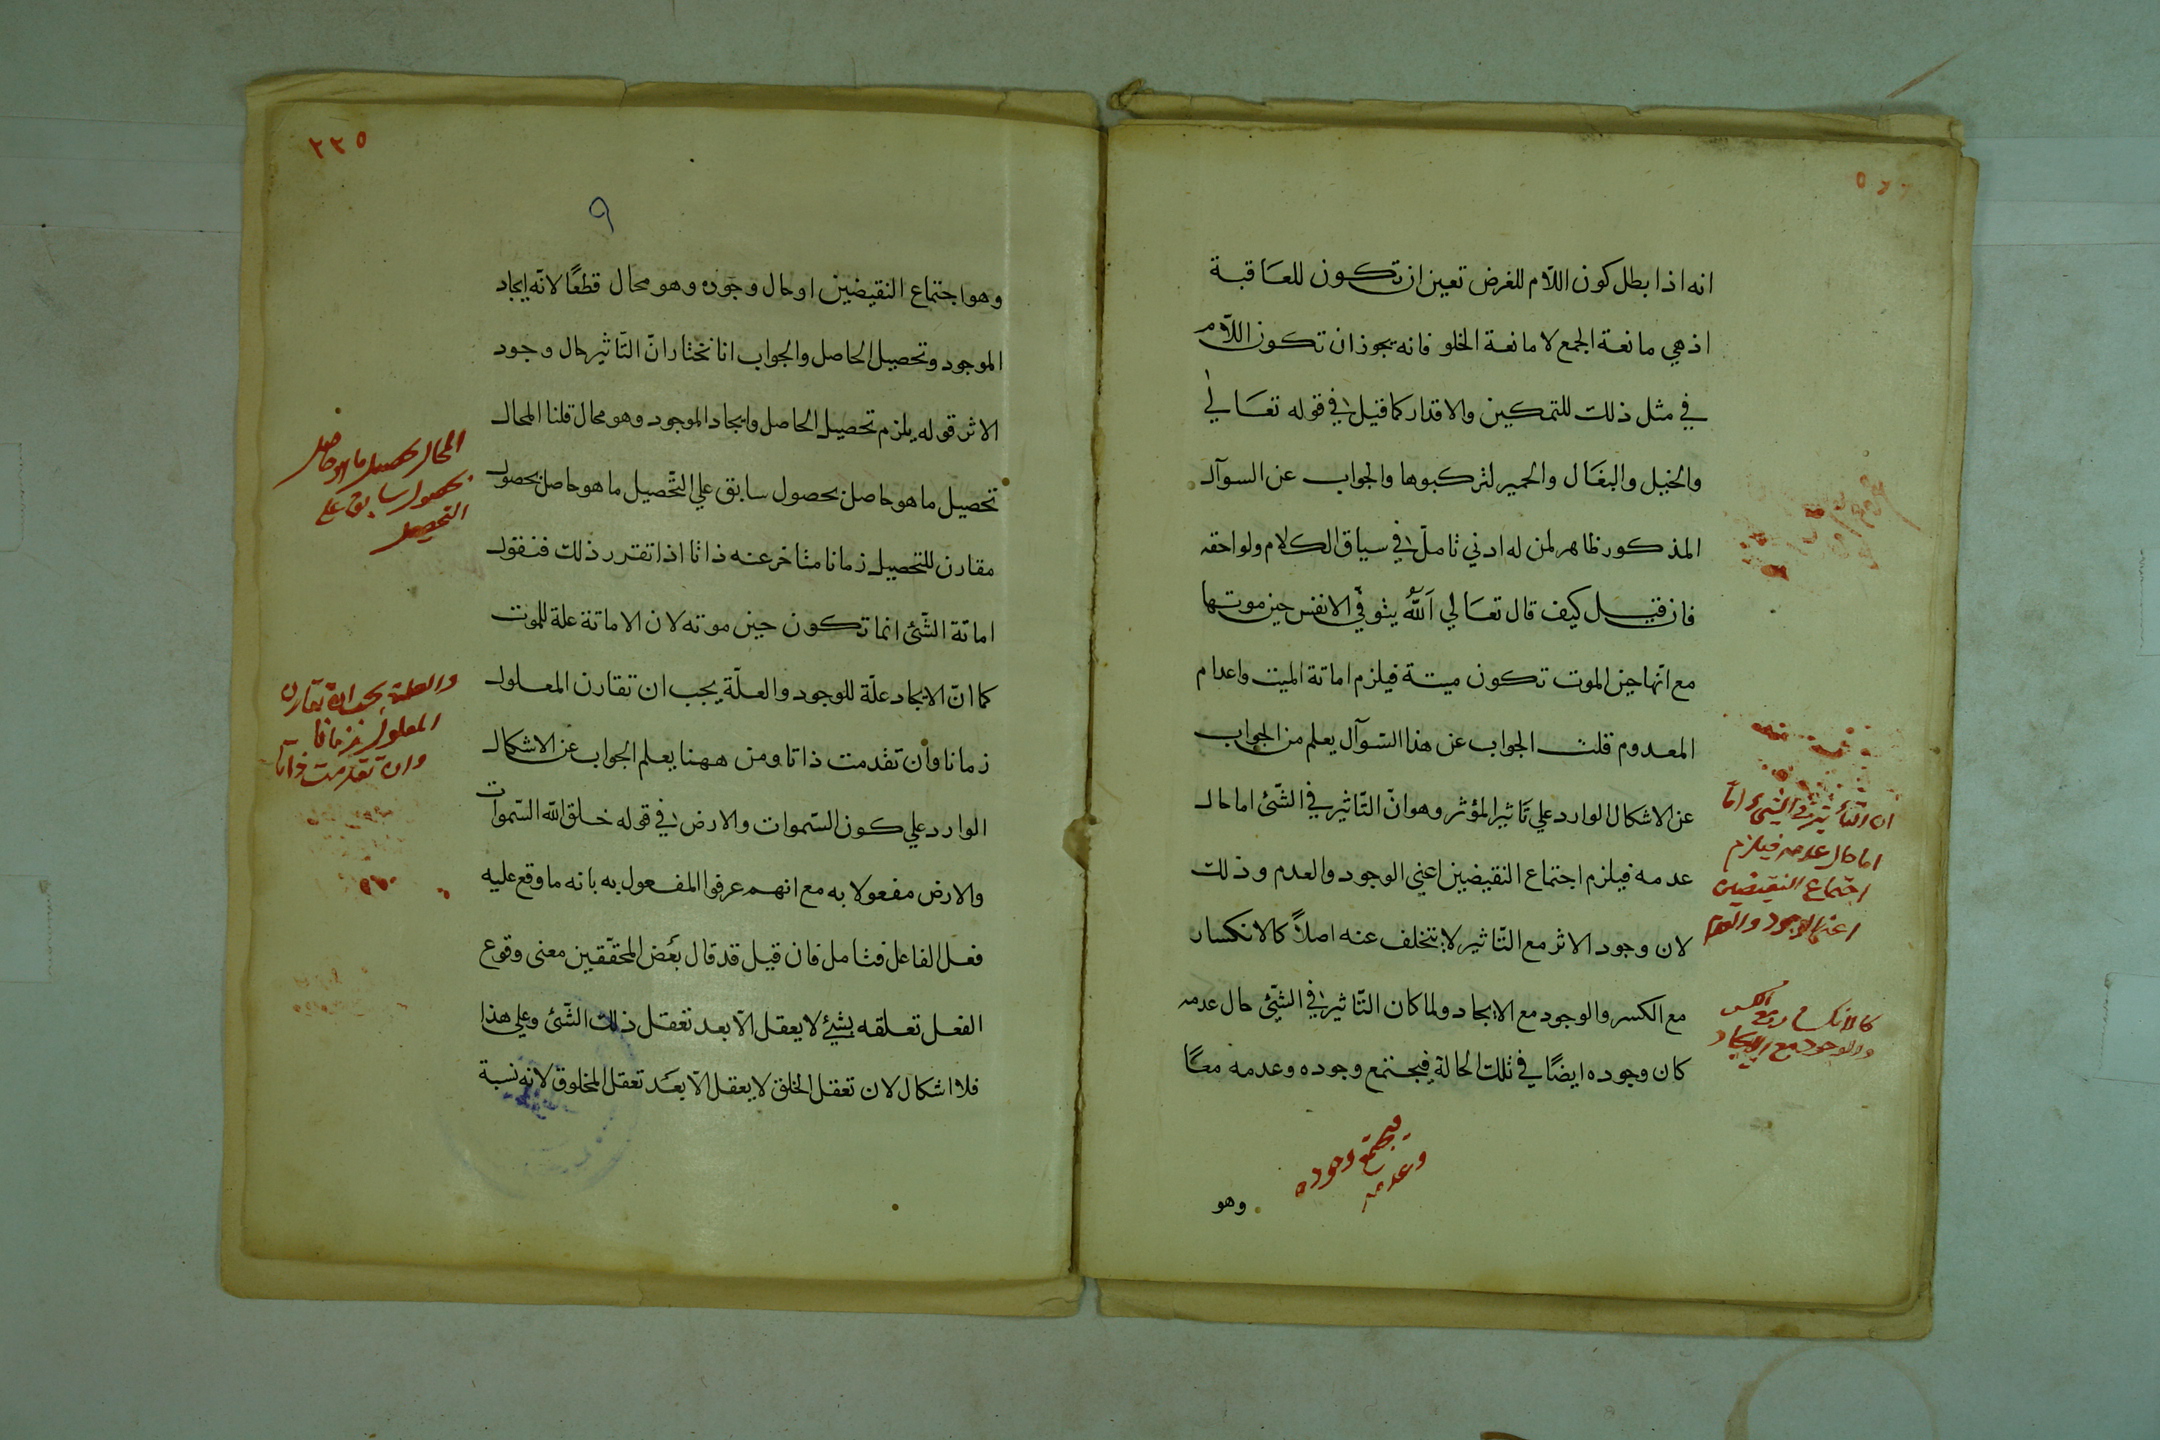 انه اذا بطل كون اللّام للغرض تعين ان تكون للعاقبة
اذ هي مانعة الجمع لا مانعة الخلو فانه يجوز ان تكون اللّام
في مثل ذلك للتمكين والاقدار كما قيل في قوله تعالي
والخيل والبغال والحمير لتركبوها والجواب عن السوآل
المذكور ظاهر لمن له ادني تامل في سياق الكلام ولواحقه
فان قيل كيف قال تعالي اللّٰه يتوفي الانفس حين موتها
مع انّها حين الموت تكون ميتة فيلزم اماتة الميت واعدام
المعدوم قلت الجواب عن هذا السّوآل يعلم من الجواب
عن الاشكال الوارد علي تاثير المؤثر وهو انّ التّاثير في الشّئ اما حال
عدمه فيلزم اجتماع النقيضين اعني الوجود والعدم وذلك
لان وجود الاثر مع التّاثير لا يتخلف عنه اصلاً كالانكسار
مع الكسر والوجود مع الايجاد ولما كان التّاثير في الشّئ حال عدمه
كان وجوده ايضًا في تلك الحالة فيجتمع وجوده وعدمه معًا
وهو
ان التأثير في الشئ اما
اما حال عدمه فيلزم
اجتماع النقيضين
اعني الوجود والعدم
كالانكسار مع الكسر
والوجود مع الايجاد
فيجتمع وجوده
وعدمه
٢٢٥
٩
وهو اجتماع النقيضين او حال وجوده وهو محال قطعًا لانّه ايجاد
الموجود وتحصيل الحاصل والجواب انا نختار انّ التّاثير حال وجود
الاثر قوله يلزم تحصيل الحاصل وايجاد الموجود وهو محال قلنا المحال
تحصيل ما هو حاصل بحصول سابق علي التّحصيل ما هو حاصل بحصول
مقارن للتحصيل زمانا متاخر عنه ذاتا اذا تقرر ذلك فنقول
اماتة الشّئ انما تكون حين موته لان الاماتة علة للموت
كما انّ الايجاد علّة للوجود والعلّة يجب ان تقارن المعلول
زمانا وان تقدمت ذاتا ومن ههنا يعلم الجواب عن الاشكال
الوارد علي كون السّموات والارض في قوله خلق اللّٰه السّموات
والارض مفعولا به مع انهم عرفوا المفعول به بانه ما وقع عليه
فعل الفاعل فتامل فان قيل قد قال بعض المحقّقين معنى وقوع
الفعل تعلقه بشئ لا يعقل الّا بعد تعقل ذلك الشّئ وعلي هذا
فلا اشكال لان تعقل الخلق لا يعقل الّا بعد تعقل المخلوق لانه نسبة
المحال تحصيل ما هو حاصل
بحصول سابق علي
التحصيل
والعلة يجب ان تقارن
المعلول زمانا
وان تقدمت ذاتا